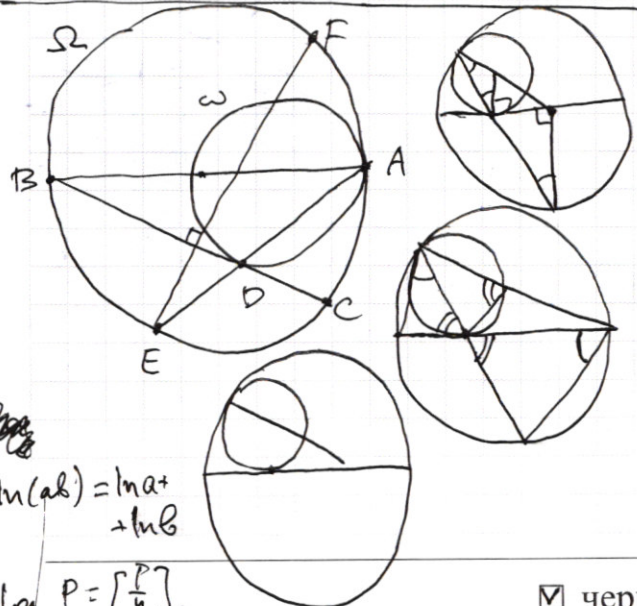 Ω
F
ω
B
A
D
C
E
ln(ab) = lna+
+lnb
P = [P/4]
чер